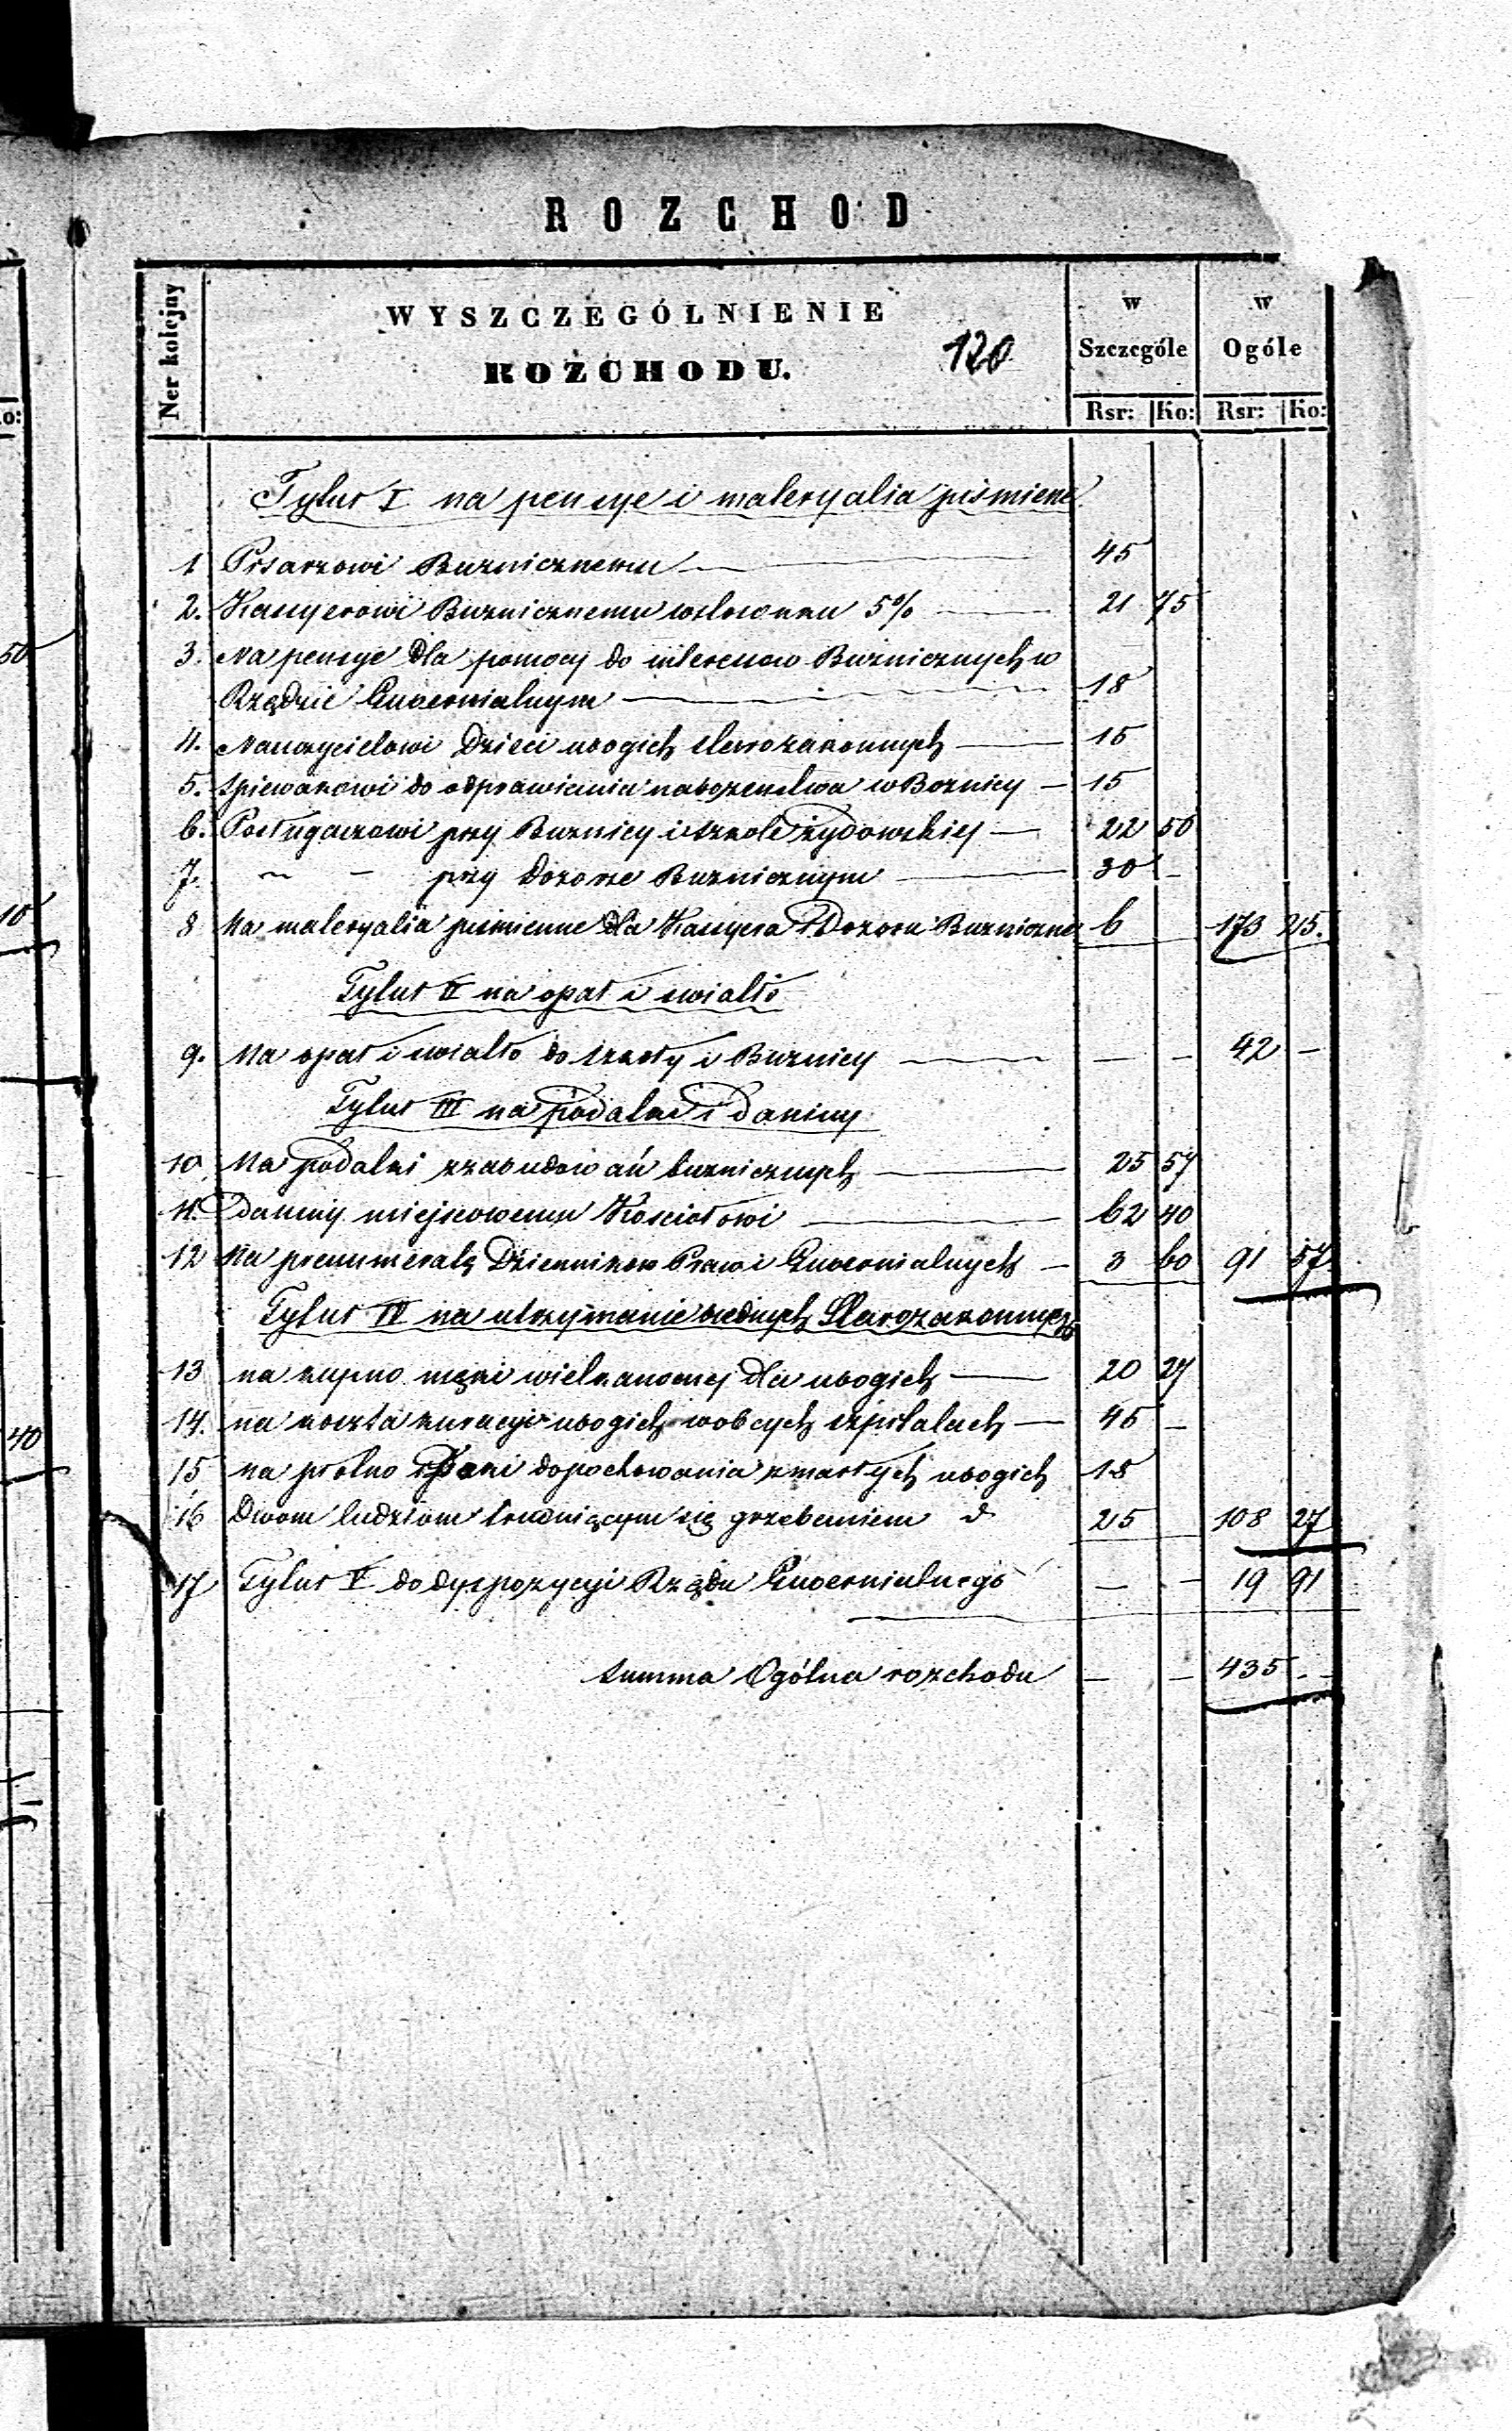 o:
50
10
40
ROZCHOD
Ner kolejny
WYSZCZEGÓLNIENIE
ROZCHODU.
120
w Szczególe
w Ogóle
Rsr: Ko: Rsr: Ko:
Tytuł I na pensye i materyalia piśmiene
1 Pisarzowi Buznicznemu 45
2. Kassyerowi Buznicznemu wstosunku 5% 21 75
3. Na pensye dla pomocy do interessow Buznicznych w
Rządzie Guwernialnym 18
4. Nauczycielowi Dzieci ubogich starozakonnych 15
5. Spiewakowi do odprawiania nabozenstwa w Boznicy 15
6. Posługaczowi przy Buznicy i szkole żydowskiej 22 50
7. " - przy dozorze Buznicznym 30 -
8 Na materyalia pismienne dla Kassyera i Dozoru Buzniczne 6 173 25.
Tytuł II na opał i swiatło
9. Na opał i swiatło do szkoły i Buznicy — - 42 -
Tytuł III na podatki i daniny
10 Na podatki z zabudowań buznicznych 25 57
11. daniny miejscowemu Kosciołowi 62 40
12 Na prenumeratę Dziennikow Praw i Guwernialnych 3 60 91 57
Tytuł IV na utrzymanie biednych Starozakonnych
13 na kupno mąki wielkanocney dla ubogich 20 27
14. na koszta kuracyi ubogich wobcych szpitalach 45 -
15 na płotno i dopochowania zmarłych ubogich 18
16 Dwom ludziom trudniącym się grzebaniem d 25 108 27
17 Tytuł V do dyspozycyi Rządu Guwernialnego — - 19 91
Summa Ogólna rozchodu — - 435 - -